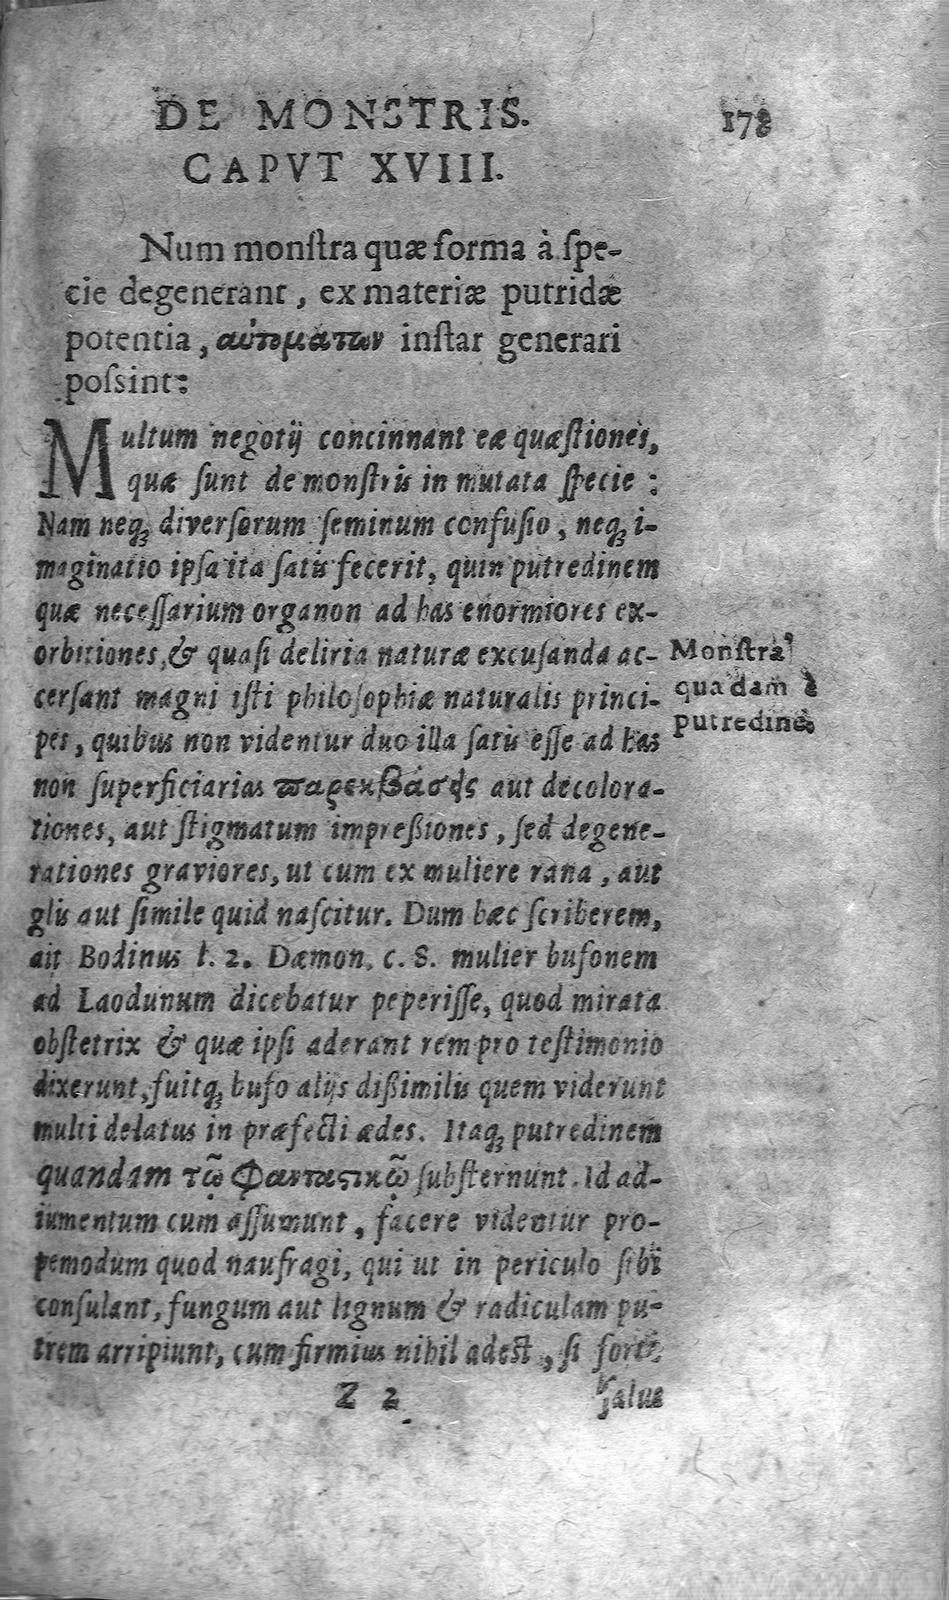 DE MONSTRIS. 178
CAPVT XVIII.
Num monſtra quæ forma à ſpe-
cie degenerant, ex materiæ putridæ
potentia, αὐτομάτων inſtar generari
poſsint:
Multum negotij concinnant eæ quæſtiones,
quæ ſunt de monſtris in mutata ſpecie :
Nam neq; diverſorum ſeminum confuſio, neq; i-
maginatio ipſa ita ſatis fecerit, quin putredinem
quæ neceſſarium organon ad has enormiores ex-
orbitiones, & quaſi deliria naturæ excuſanda ac-
cerſant magni iſti philoſophiæ naturalis princi-
pes, quibus non videntur duo illa ſatis eſſe ad has
non ſuperficiarias παρεκβάσεις aut decolora-
tiones, aut ſtigmatum impreßiones, ſed degene-
rationes graviores, ut cum ex muliere rana, aut
glis aut ſimile quid naſcitur. Dum hæc ſcriberem,
ait Bodinus l. 2. Dæmon. c. 8. mulier bufonem
ad Laodunum dicebatur peperiſſe, quod mirata
obſtetrix & quæ ipſi aderant rem pro teſtimonio
dixerunt, fuitq; bufo alijs dißimilis quem viderunt
multi delatus in præfecti ædes. Itaq; putredinem
quandam τῶ φανταςικῶ ſubſternunt. Id ad-
iumentum cum aſſumunt, facere videntur pro-
pemodum quod naufragi, qui ut in periculo ſibi
conſulant, fungum aut lignum & radiculam pu-
trem arripiunt, cum firmius nihil adeſt, ſi forte
Z 2 ſalue
Monſtra
quædam è
putredine.